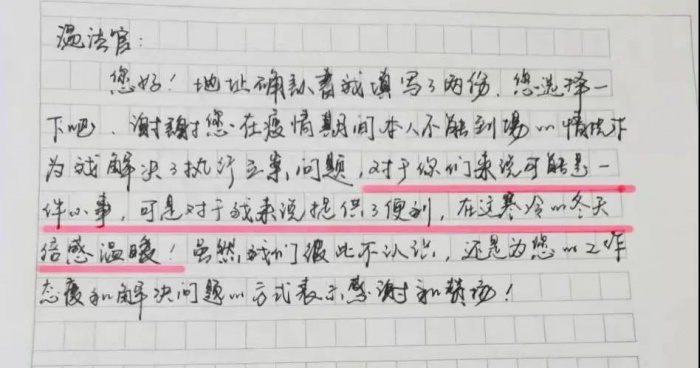 温法官：
您好！地址确认书我填写了两份，您选择一
下吧，谢谢您在疫情期间本人不能到场的情况下
为我解决了执行立案问题，对于你们来说可能是一
件小事，可是对于我来说提供了便利，在这寒冷的冬天
倍感温暖！虽然我们彼此不认识，还是为您的工作
态度和解决问题的方式表示感谢和赞扬！